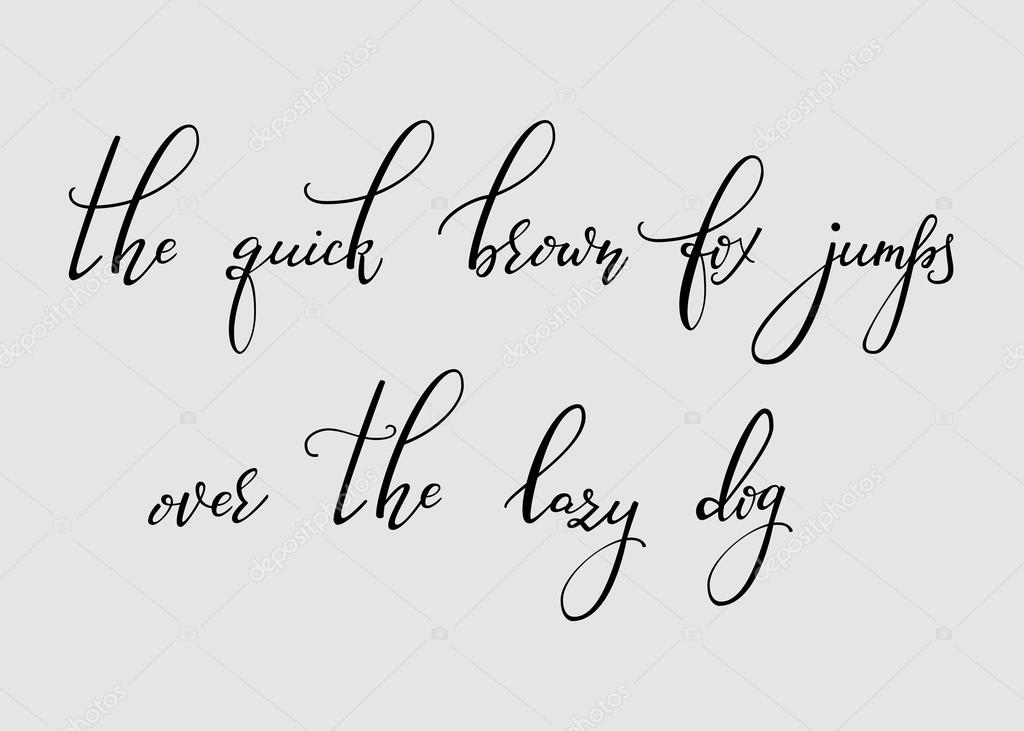 the quick brown fox jumps
over the lazy dog
depositphotos